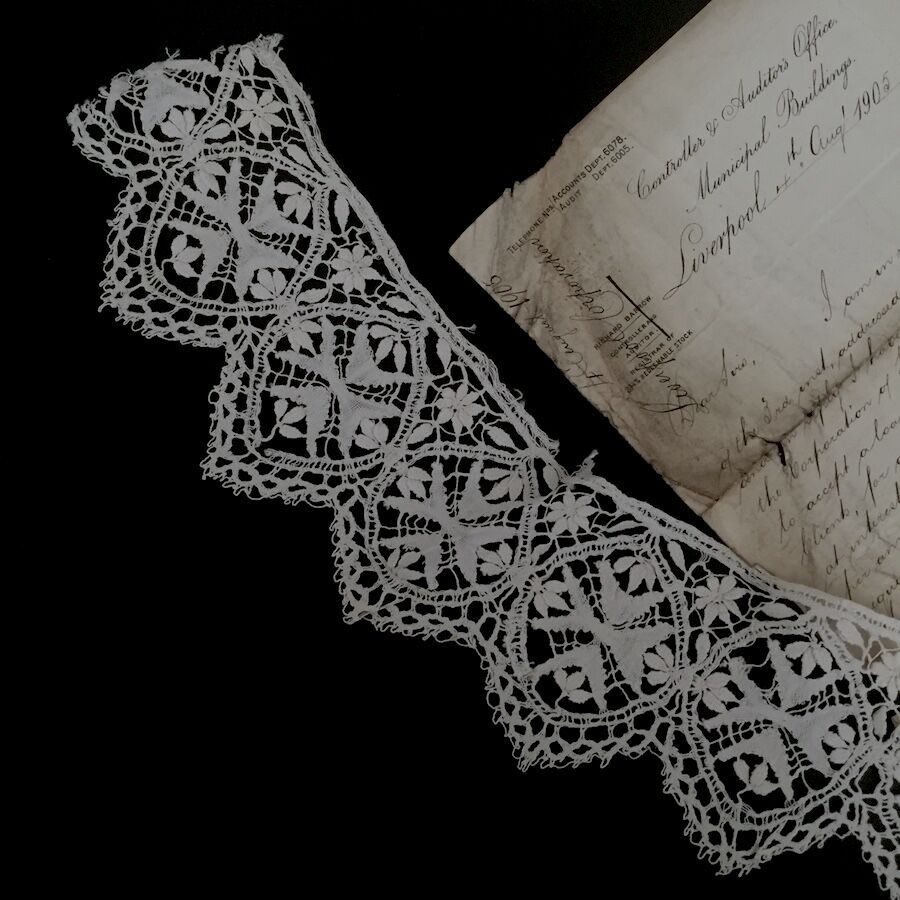 Controller & Auditors Office,
Municipal Buildings.
Liverpool, 4th Aug 1905
TELEPHONE Nos ACCOUNTS DEPT. 6078.
AUDIT DEPT. 6005.
RICHARD BARROW
CONTROLLER &
AUDITOR
REGISTRAR OF
REDEEMABLE STOCK
Corporation
Dear Sirs,
I am in
of the 3rd inst, addressed
the Corporation of
to accept a loan
client, for
at interest
per an